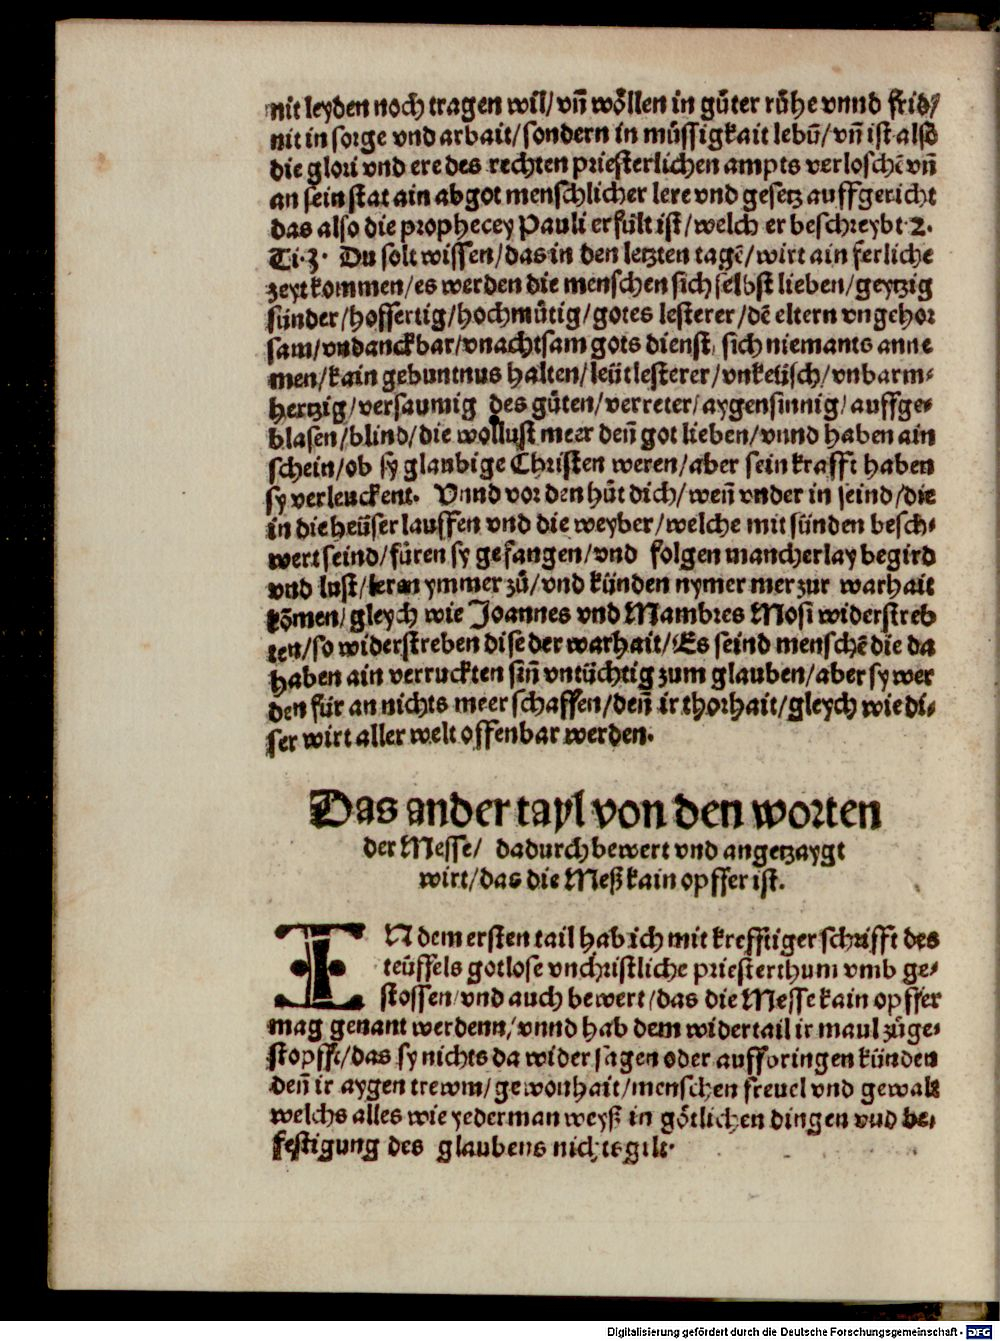 nit leyden noch tragen wil/ vñ wöllen in gůter růhe vnnd frid/
nit in sorge vnd arbait/ sondern in müssigkait lebñ/ vñ ist also
die glori vnd ere des rechten priesterlichen ampts verloschẽ vñ
an sein stat ain abgot menschlicher lere vnd gesetz auffgericht
das also die prophecey Pauli erfült ist/ welch er beschreybt 2.
Ti. 3. Du solt wissen/ das in den letzten tagẽ/ wirt ain ferliche
zeyt kommen/ es werden die menschen sich selbst lieben/ geytzig
sünder/ hoffertig/ hochmůtig/ gotes lesterer/ dẽ eltern vngehor
sam/ vndanckbar/ vnachtsam gots dienst/ sich niemants anne
men/ kain gebuntnus halten/ leütlesterer/ vnkeüsch/ vnbarm-
hertzig/ versaumig des gůten/ verreter/ aygensinnig/ auffge-
blasen/ blind/ die wollust meer deñ got lieben/ vnnd haben ain
schein/ ob sy glaubige Christen weren/ aber sein krafft haben
sy verleuckent. Vnnd vor den hůt dich/ weñ vnder in seind/ die
in die heüser lauffen vnd die weyber/ welche mit sünden besch-
wert seind/ fůren sy gefangen/ vnd folgen mancherlay begird
vnd lust/ leren ymmer zů/ vnd künden nymer mer zur warhait
kõmen/ gleych wie Joannes vnd Mambres Mosi widerstreb
ten/ so widerstreben dise der warhait/ Es seind menschẽ die da
haben ain verruckten siñ vntüchtig zum glauben/ aber sy wer
den für an nichts meer schaffen/ deñ ir thorhait/ gleych wie di-
ser wirt aller welt offenbar werden.
Das ander tayl von den worten
der Messe/ dadurch bewert vnd angetzaygt
wirt/ das die Meß kain opffer ist.
IN dem ersten tail hab ich mit krefftiger schrifft des
teüffels gotlose vnchristliche priesterthum vmb ge-
stossen/ vnd auch bewert/ das die Messe kain opffer
mag genant werdenn/ vnnd hab dem widertail ir maul zůge-
stopfft/ das sy nichts da wider sagen oder auffbringen künden
deñ ir aygen trewm/ gewonhait/ menschen freuel vnd gewalt
welchs alles wie yederman weyß in götlichen dingen vnd be-
festigung des glaubens nichts gilt.
Digitalisierung gefördert durch die Deutsche Forschungsgemeinschaft - DFG